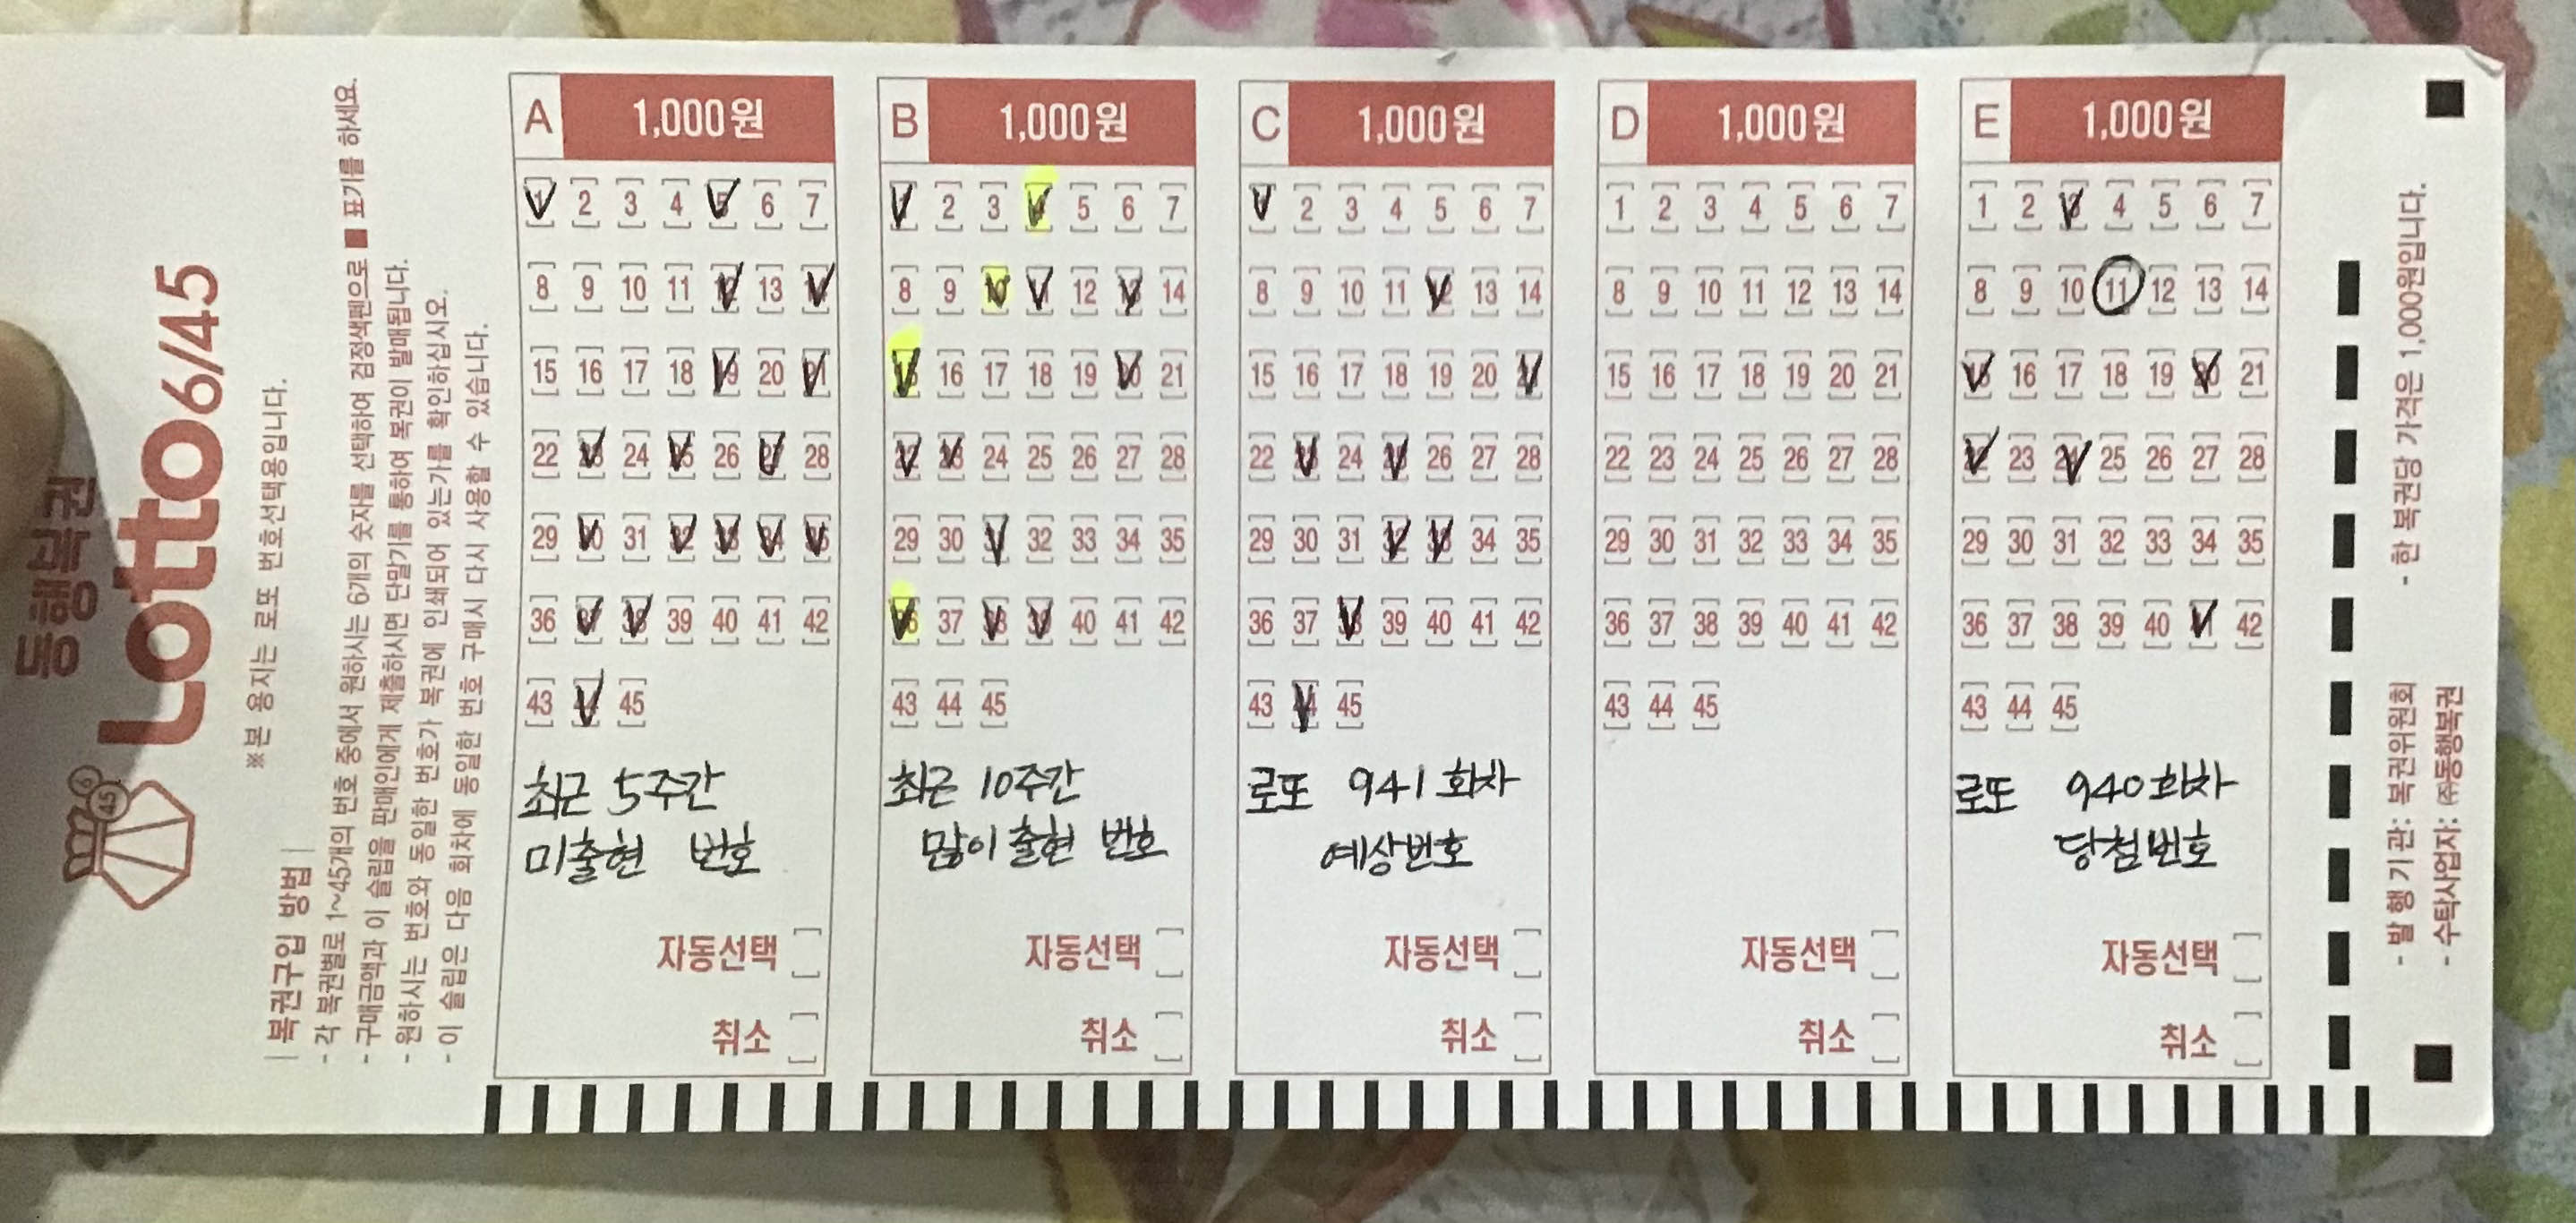 동행복권
Lotto6/45
6
45
※본 용지는 로또 번호선택용입니다.
| 복권구입 방법 |
- 각 복권별로 1~45개의 번호 중에서 원하시는 6개의 숫자를 선택하여 검정색펜으로 ■ 표기를 하세요.
- 구매금액과 이 슬립을 판매인에게 제출하시면 단말기를 통하여 복권이 발매됩니다.
- 원하시는 번호와 동일한 번호가 복권에 인쇄되어 있는가를 확인하십시오.
- 이 슬립은 다음 회차에 동일한 번호 구매시 다시 사용할 수 있습니다.
A 1,000원
1 2 3 4 5 6 7
8 9 10 11 12 13 14
15 16 17 18 19 20 21
22 23 24 25 26 27 28
29 30 31 32 33 34 35
36 37 38 39 40 41 42
43 44 45
최근 5주간
미출현 번호
자동선택 [ ]
취소 [ ]
B 1,000원
1 2 3 4 5 6 7
8 9 10 11 12 13 14
15 16 17 18 19 20 21
22 23 24 25 26 27 28
29 30 31 32 33 34 35
36 37 38 39 40 41 42
43 44 45
최근 10주간
많이 출현 번호
자동선택 [ ]
취소 [ ]
C 1,000원
1 2 3 4 5 6 7
8 9 10 11 12 13 14
15 16 17 18 19 20 21
22 23 24 25 26 27 28
29 30 31 32 33 34 35
36 37 38 39 40 41 42
43 44 45
로또 941회차
예상번호
자동선택 [ ]
취소 [ ]
D 1,000원
1 2 3 4 5 6 7
8 9 10 11 12 13 14
15 16 17 18 19 20 21
22 23 24 25 26 27 28
29 30 31 32 33 34 35
36 37 38 39 40 41 42
43 44 45
자동선택 [ ]
취소 [ ]
E 1,000원
1 2 3 4 5 6 7
8 9 10 11 12 13 14
15 16 17 18 19 20 21
22 23 24 25 26 27 28
29 30 31 32 33 34 35
36 37 38 39 40 41 42
43 44 45
로또 940회차
당첨번호
자동선택 [ ]
취소 [ ]
- 한 복권당 가격은 1,000원입니다.
- 발 행 기 관: 복권위원회
- 수탁사업자: ㈜동행복권